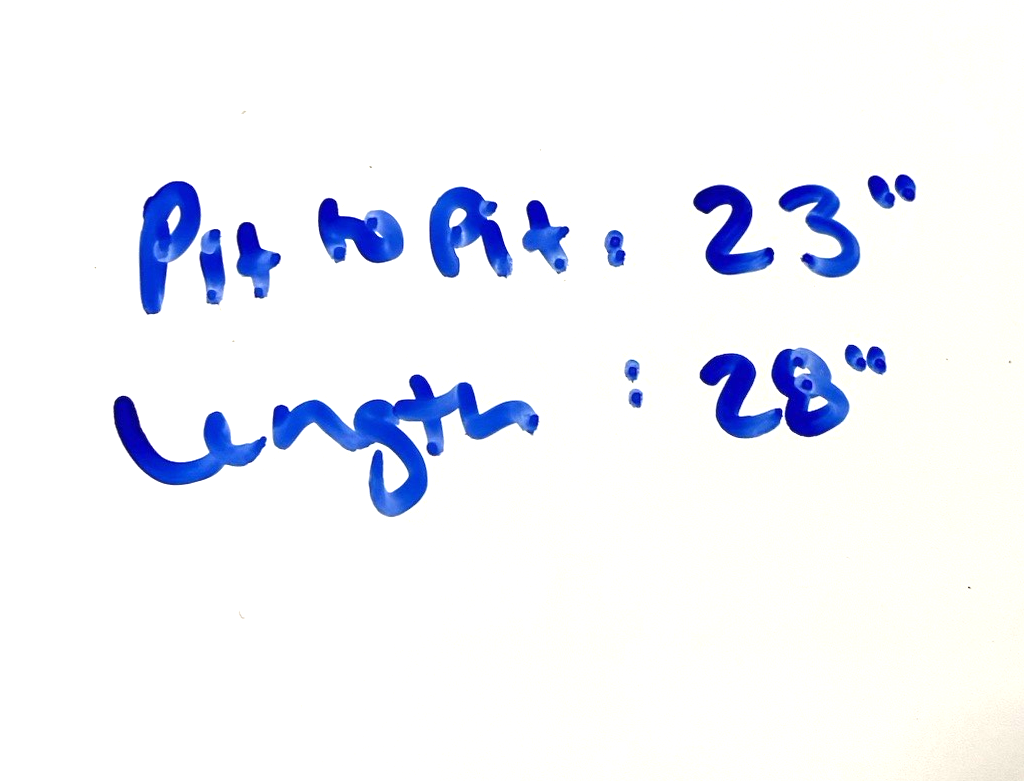 Pit to Pit : 23"
Length : 28"